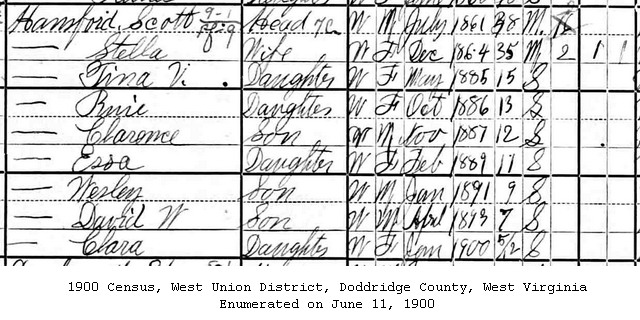 Hansford, Scott Head W M July 1861 38 M
— Stella Wife W F Dec 1864 35 M 2 1 1
— Tina V. Daughter W F May 1885 15 S
— Daughter W F Oct 1886 13 S
— Clarence Son W M Nov 1887 12 S
— Essa Daughter W F Feb 1889 11 S
— Wesley Son W M Jan 1891 9 S
— David W Son W M 1893 7 S
— Clara Daughter W F 1900 5/12 S
1900 Census, West Union District, Doddridge County, West Virginia
Enumerated on June 11, 1900